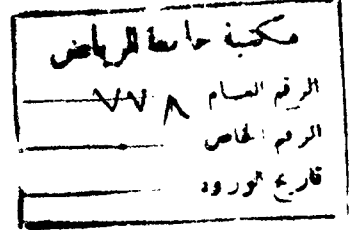 مكتبة جامعة الرياض
الرقم العام ٧٧٨
الرقم الخاص
تاريخ الورود